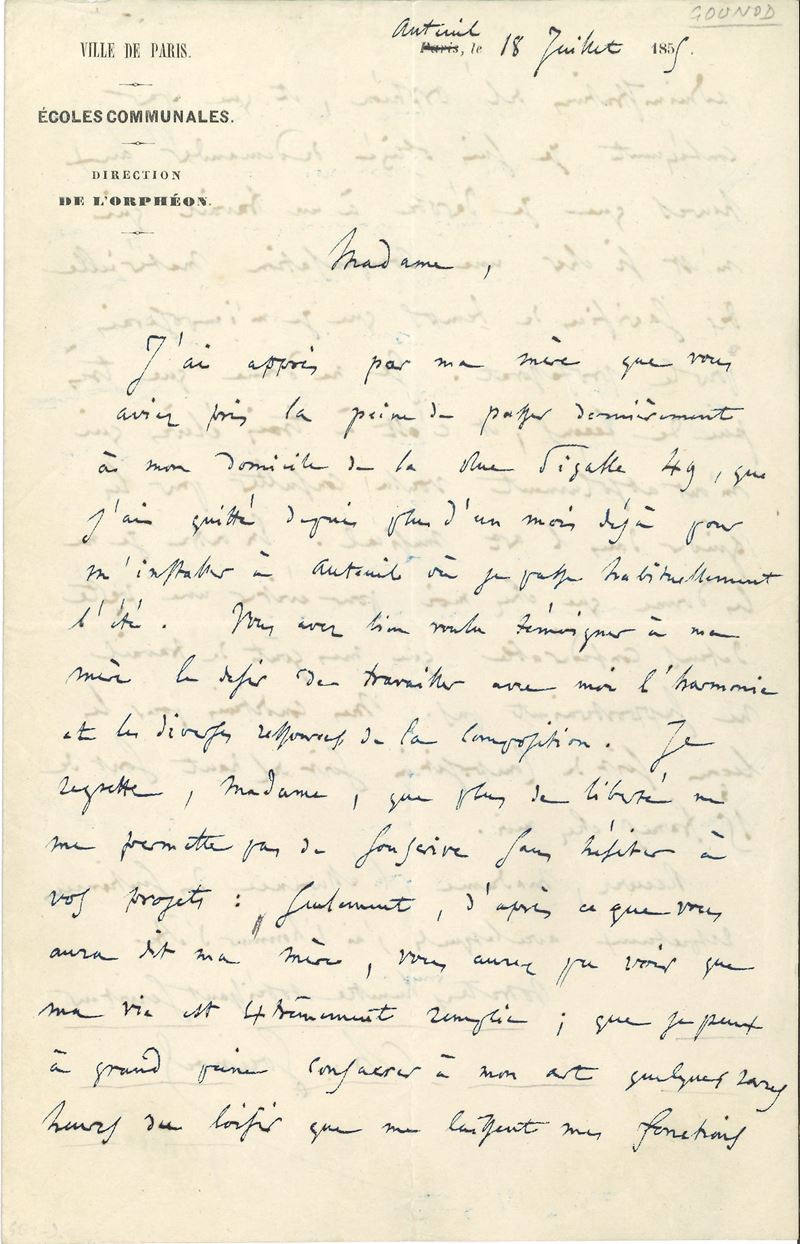 GOUNOD
Auteuil
VILLE DE PARIS.
Paris, le 18 Juillet 1855.
ÉCOLES COMMUNALES.
DIRECTION
DE L'ORPHÉON.
Madame,
J'ai appris par ma mère que vous
aviez pris la peine de passer dernièrement
à mon domicile de la rue Pigalle 49, que
j'ai quitté depuis plus d'un mois déjà pour
m'installer à Auteuil où je passe habituellement
l'été. Vous avez bien voulu témoigner à ma
mère le desir de travailler avec moi l'harmonie
et les diverses ressources de la composition. Je
regrette, Madame, que plus de liberté ne
me permette pas de souscrire sans hésiter à
vos projets : seulement, d'après ce que vous
aura dit ma mère, vous aurez pu voir que
ma vie est extrêmement remplie ; que je peux
à grand peine consacrer à mon art quelques rares
heures de loisir que me laissent mes fonctions